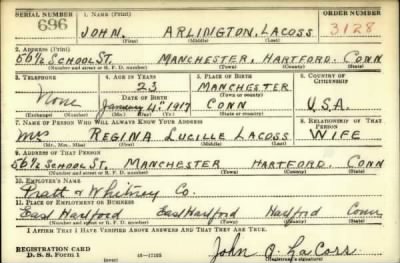 SERIAL NUMBER 1. NAME (Print) ORDER NUMBER
696 JOHN. ARLINGTON. LACOSS 3128
(First) (Middle) (Last)
2. ADDRESS (Print)
56½ SCHOOL ST. MANCHESTER, HARTFORD. CONN
(Number and street or R. F. D. number) (Town) (County) (State)
3. TELEPHONE 4. AGE IN YEARS 5. PLACE OF BIRTH 6. COUNTRY OF CITIZENSHIP
None 23 MANCHESTER
DATE OF BIRTH (Town or county)
January 4, 1917 CONN U.S.A.
(Exchange) (Number) (Mo.) (Day) (Yr.) (State or country)
7. NAME OF PERSON WHO WILL ALWAYS KNOW YOUR ADDRESS 8. RELATIONSHIP OF THAT PERSON
Mrs REGINA LUCILLE LACOSS WIFE
(Mr., Mrs., Miss) (First) (Middle) (Last)
9. ADDRESS OF THAT PERSON
56½ SCHOOL ST. MANCHESTER HARTFORD. CONN
(Number and street or R. F. D. number) (Town) (County) (State)
10. EMPLOYER'S NAME
Pratt & Whitney Co.
11. PLACE OF EMPLOYMENT OR BUSINESS
East Hartford East Hartford Hartford Conn
(Number and street or R. F. D. number) (Town) (County) (State)
I AFFIRM THAT I HAVE VERIFIED ABOVE ANSWERS AND THAT THEY ARE TRUE.
REGISTRATION CARD
D. S. S. Form 1 (over) 16—17105 John A. LaCoss
(Registrant's signature)